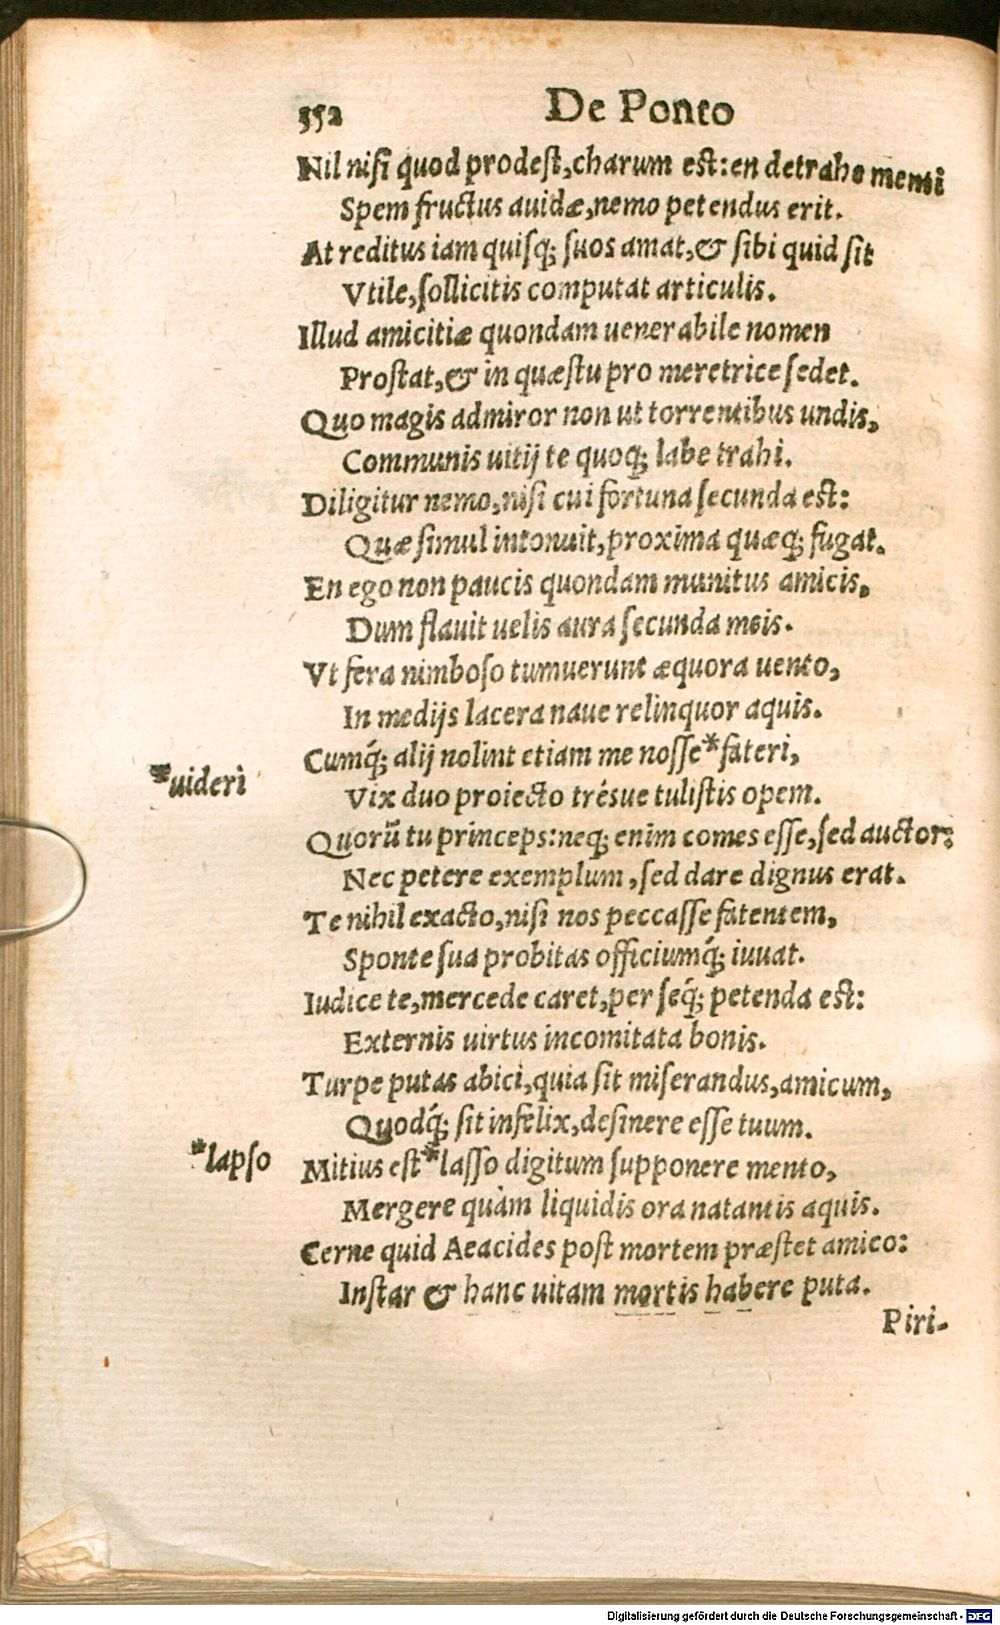 352 De Ponto
Nil nisi quod prodest, charum est: en detrahe menti
Spem fructus auidæ, nemo petendus erit.
At reditus iam quisq; suos amat, & sibi quid sit
Vtile, sollicitis computat articulis.
Illud amicitiæ quondam uenerabile nomen
Prostat, & in quæstu pro meretrice sedet.
Quo magis admiror non ut torrentibus undis,
Communis uitij te quoq; labe trahi.
Diligitur nemo, nisi cui fortuna secunda est:
Quæ simul intonuit, proxima quæq; fugat.
En ego non paucis quondam munitus amicis,
Dum flauit uelis aura secunda meis.
Vt fera nimboso tumuerunt æquora uento,
In medijs lacera naue relinquor aquis.
Cumq́; alij nolint etiam me nosse *fateri,
*uideri
Vix duo proiecto trésue tulistis opem.
Quorũ tu princeps: neq; enim comes esse, sed auctor:
Nec petere exemplum, sed dare dignus erat.
Te nihil exacto, nisi nos peccasse fatentem,
Sponte sua probitas officiumq́; iuuat.
Iudice te, mercede caret, per seq́; petenda est:
Externis uirtus incomitata bonis.
Turpe putas abici, quia sit miserandus, amicum,
Quodq́; sit infelix, desinere esse tuum.
*lapso
Mitius est *lasso digitum supponere mento,
Mergere quàm liquidis ora natantis aquis.
Cerne quid Aeacides post mortem præstet amico:
Instar & hanc uitam mortis habere puta.
Piri-
Digitalisierung gefördert durch die Deutsche Forschungsgemeinschaft - DFG